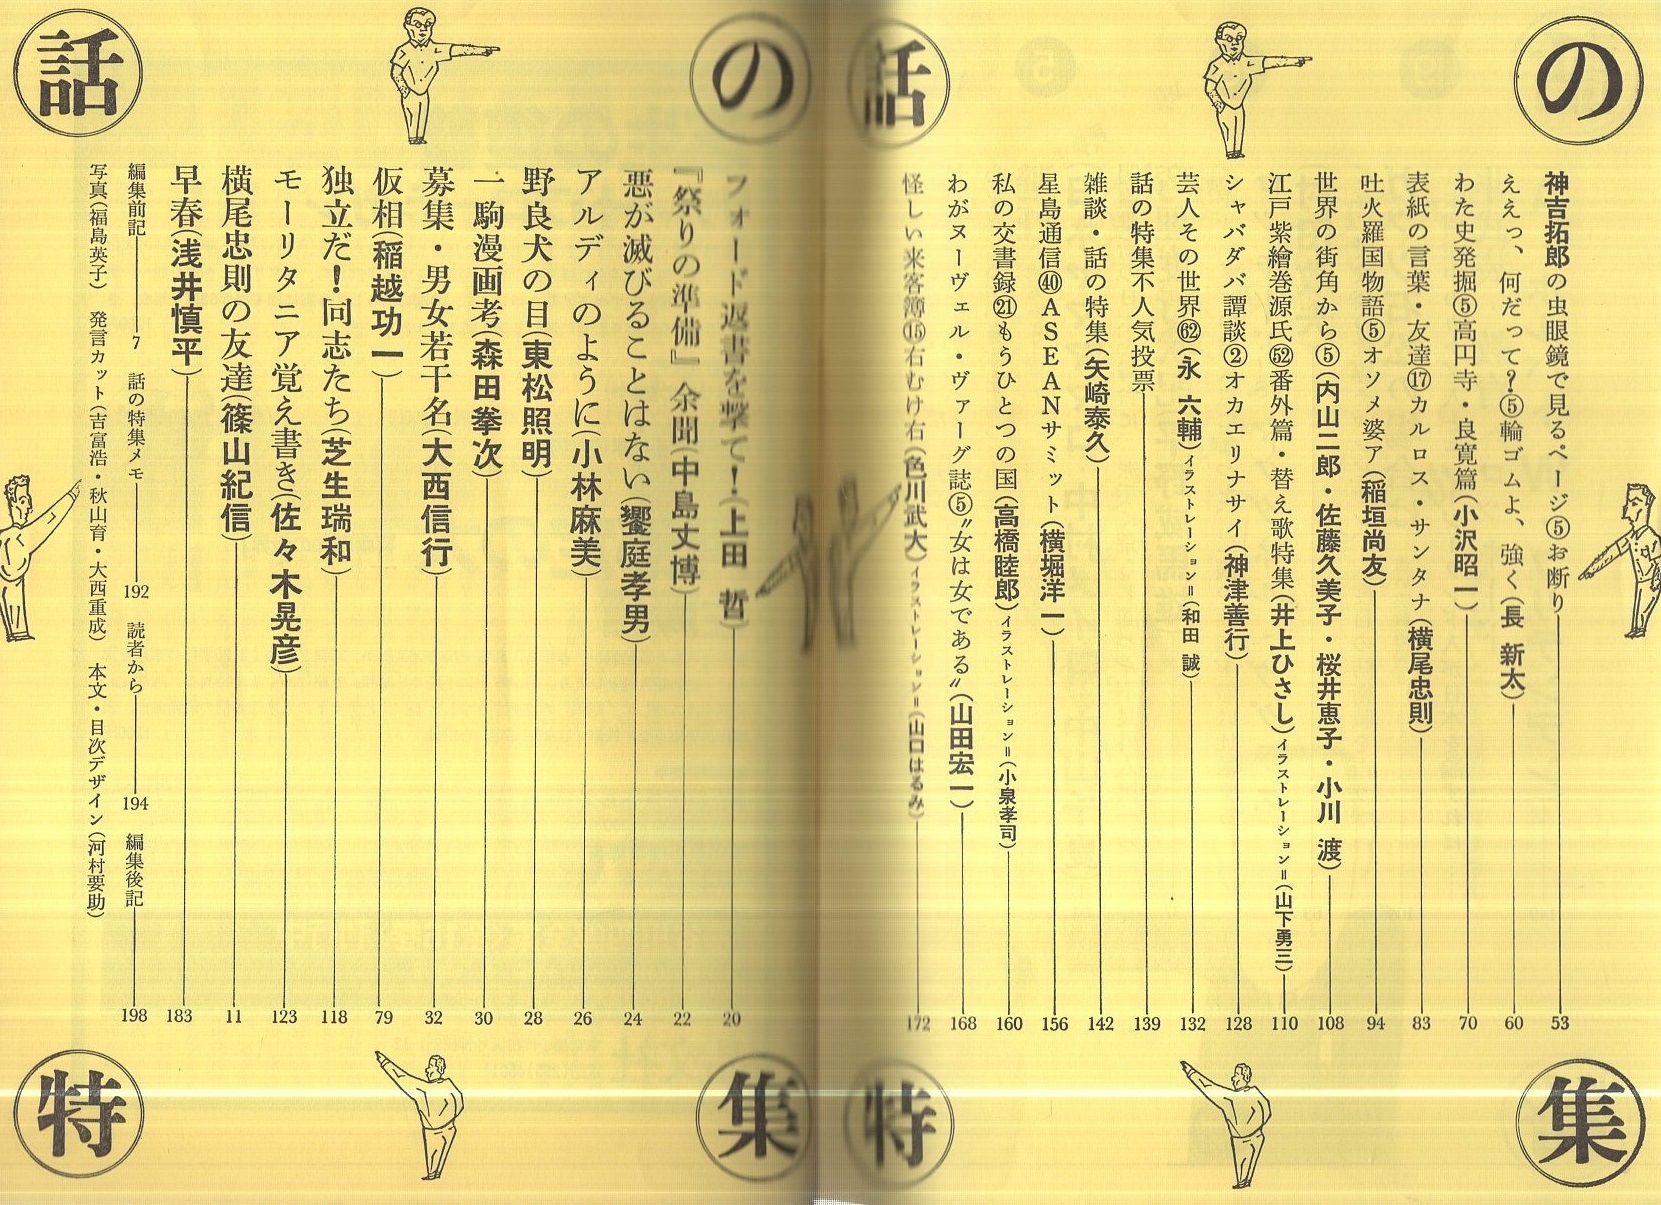 話の特集
神吉拓郎の虫眼鏡で見るページ⑤お断り 53
ええっ、何だって?⑤輪ゴムよ、強く(長 新太) 60
わた史発掘⑤高円寺・良寛篇(小沢昭一) 70
表紙の言葉・友達⑰カルロス・サンタナ(横尾忠則) 83
吐火羅国物語⑤オソメ婆ア(稲垣尚友) 94
世界の街角から⑤(内山二郎・佐藤久美子・桜井恵子・小川 渡) 108
江戸紫繪巻源氏52番外篇・替え歌特集(井上ひさし)イラストレーション=(山下勇三) 110
シャバダバ譚談②オカエリナサイ(神津善行) 128
芸人その世界62(永 六輔)イラストレーション=(和田 誠) 132
話の特集不人気投票 139
雑談・話の特集(矢崎泰久) 142
星島通信㊵ASEANサミット(横堀洋一) 156
私の交書録㉑もうひとつの国(高橋睦郎)イラストレーション=(小泉孝司) 160
わがヌーヴェル・ヴァーグ誌⑤〝女は女である〟(山田宏一) 168
怪しい来客簿⑮右むけ右(色川武大)イラストレーション=(山口はるみ) 172
話の特集
フォード返書を撃て!(上田 哲) 20
『祭りの準備』余聞(中島丈博) 22
悪が滅びることはない(饗庭孝男) 24
アルディのように(小林麻美) 26
野良犬の目(東松照明) 28
一駒漫画考(森田拳次) 30
募集・男女若干名(大西信行) 32
仮相(稲越功一) 79
独立だ!同志たち(芝生瑞和) 118
モーリタニア覚え書き(佐々木晃彦) 123
横尾忠則の友達(篠山紀信) 11
早春(浅井慎平) 183
編集前記 7 話の特集メモ 192 読者から 194 編集後記 198
写真(福島英子) 発言カット(吉富浩・秋山育・大西重成) 本文・目次デザイン(河村要助)